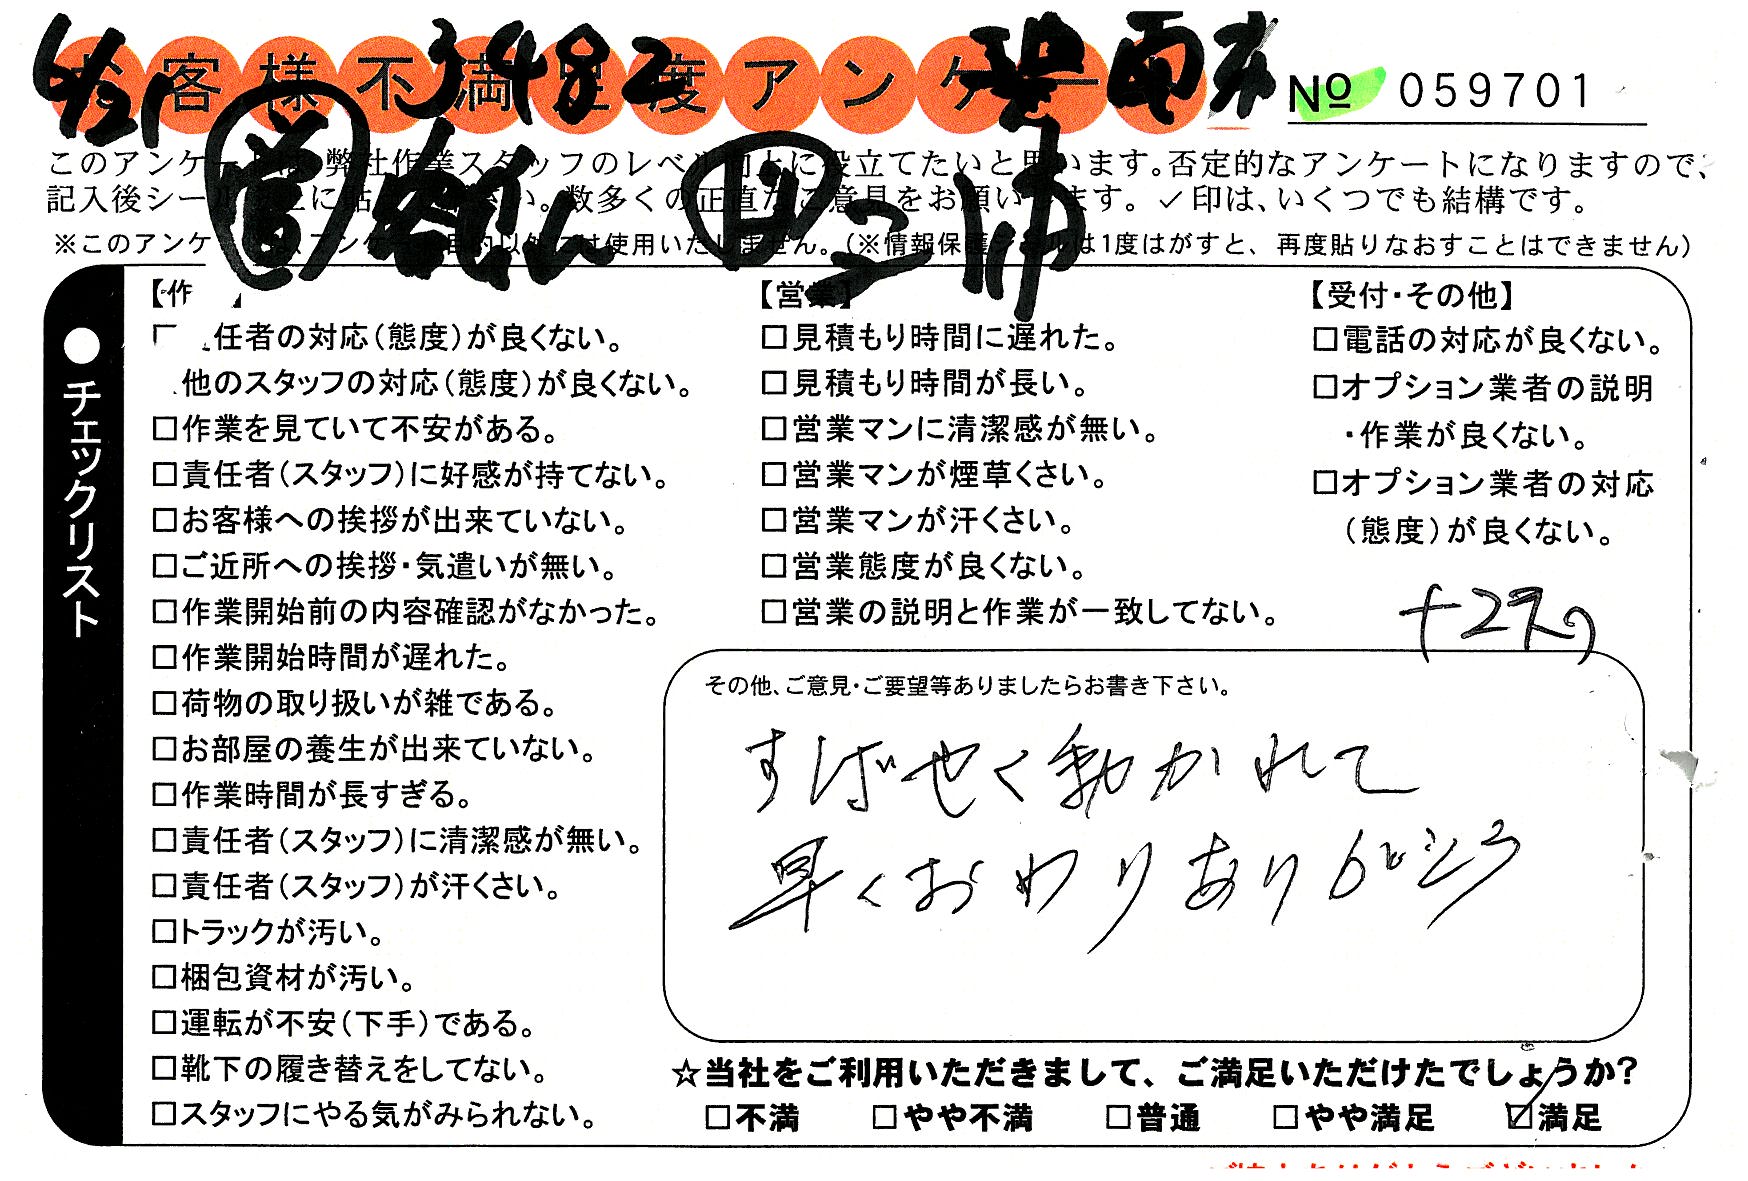 6/21 3482
お客様不満足度アンケート
№ 059701
このアンケートは、弊社作業スタッフのレベル向上に役立てたいと思います。否定的なアンケートになりますので、
記入後シールを上に貼ってください。数多くの正直なご意見をお願いします。✓印は、いくつでも結構です。
※このアンケートは、アンケート目的以外には使用いたしません。（※情報保護シールは1度はがすと、再度貼りなおすことはできません）
●チェックリスト
【作
任者の対応（態度）が良くない。
他のスタッフの対応（態度）が良くない。
□作業を見ていて不安がある。
□責任者（スタッフ）に好感が持てない。
□お客様への挨拶が出来ていない。
□ご近所への挨拶・気遣いが無い。
□作業開始前の内容確認がなかった。
□作業開始時間が遅れた。
□荷物の取り扱いが雑である。
□お部屋の養生が出来ていない。
□作業時間が長すぎる。
□責任者（スタッフ）に清潔感が無い。
□責任者（スタッフ）が汗くさい。
□トラックが汚い。
□梱包資材が汚い。
□運転が不安（下手）である。
□靴下の履き替えをしてない。
□スタッフにやる気がみられない。
【営業】
□見積もり時間に遅れた。
□見積もり時間が長い。
□営業マンに清潔感が無い。
□営業マンが煙草くさい。
□営業マンが汗くさい。
□営業態度が良くない。
□営業の説明と作業が一致してない。
【受付・その他】
□電話の対応が良くない。
□オプション業者の説明
・作業が良くない。
□オプション業者の対応
（態度）が良くない。
その他、ご意見・ご要望等ありましたらお書き下さい。
すばやく動かれて
早くおわりありがとう
☆当社をご利用いただきまして、ご満足いただけたでしょうか？
□不満 □やや不満 □普通 □やや満足 ☑満足